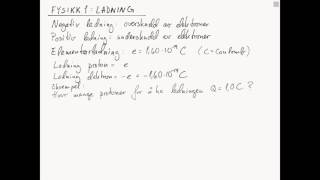 FYSIKK 1 : LADNING
Negativ ladning: overskudd av elektroner
Positiv ladning: underskudd av elektroner
Elementærladning: e = 1,60·10⁻¹⁹ C (C = Coulomb)
Ladning proton = e
Ladning elektron = -e = -1,60·10⁻¹⁹ C
Eksempel:
Hvor mange protoner for å ha ladningen Q = 1,0 C ?